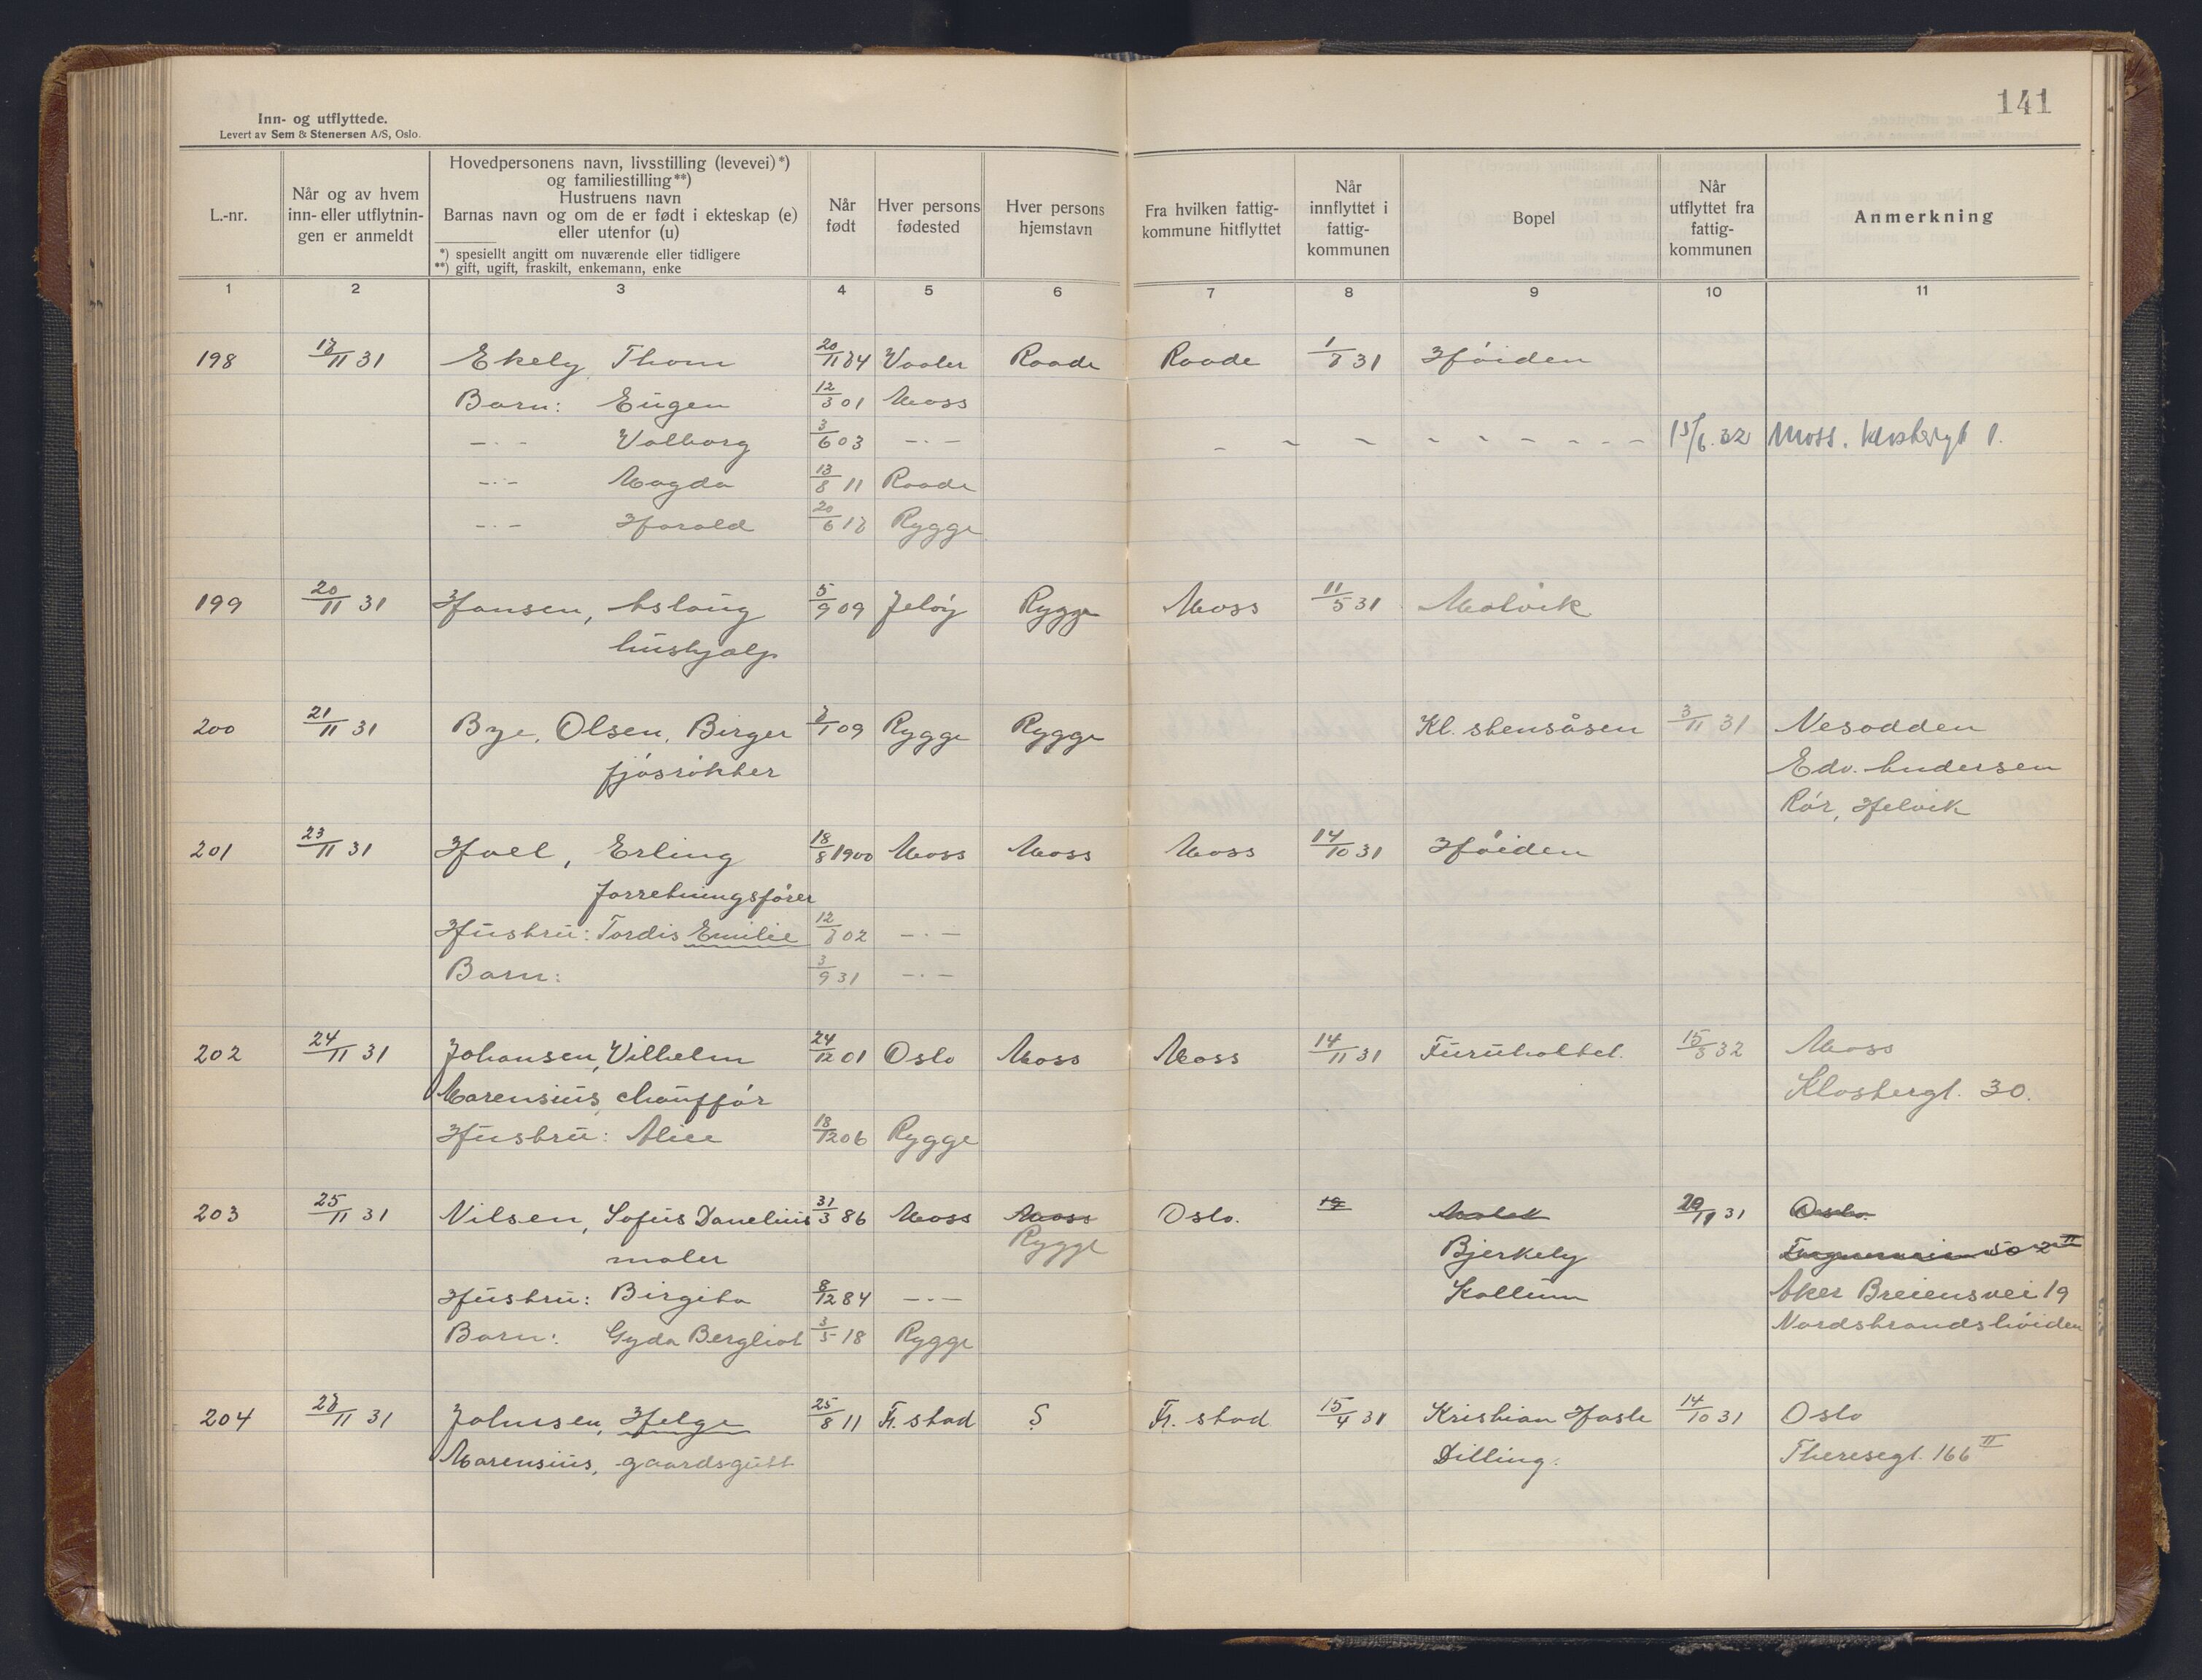 141
Inn- og utflyttede.
Levert av Sem & Stenersen A/S, Oslo.
L.-nr.
Når og av hvem inn- eller utflytnin- gen er anmeldt
Hovedpersonens navn, livsstilling (levevei)*)
og familiestilling**)
Hustruens navn
Barnas navn og om de er født i ekteskap (e)
eller utenfor (u)
*) spesiellt angitt om nuværende eller tidligere
**) gift, ugift, fraskilt, enkemann, enke
Når født
Hver persons fødested
Hver persons hjemstavn
Fra hvilken fattig- kommune hitflyttet
Når innflyttet i fattig- kommunen
Bopel
Når utflyttet fra fattig- kommunen
Anmerkning
1 2 3 4 5 6 7 8 9 10 11
198 18/11 31 Ekely, Thom 20/11 84 Vaaler Raade Raade 1/8 31 Høiden
Barn: Eugen 12/3 01 Moss
—·— Valborg 3/6 03 —·— - - - - - - - - - 15/6.32 Moss. 1.
—·— Magda 13/8 11 Raade
—·— Harald 20/6 18 Rygge
199 20/11 31 Hansen, Aslaug 5/9 09 Jeløy Rygge Moss 11/5 31 Molvik
hushjælp
200 21/11 31 Bye, Olsen, Birger /1 09 Rygge Rygge Kl. stensåsen 3/11 31 Nesodden
fjøsrøkter Edv. Andersen
Rør, Helvik
201 23/11 31 Hoel, Erling 18/8 1900 Moss Moss Moss 14/10 31 Høiden
forretningsfører
Hustru: Tordis Emilie 12/8 02 —·—
Barn: 3/9 31 —·—
202 24/11 31 Johansen, Vilhelm 24/12 01 Oslo Moss Moss 14/11 31 Furuholtet. 15/3 32 Moss
Marensius, chauffør Klostergt. 30.
Hustru: Alice 18/12 06 Rygge
203 25/11 31 Nilsen, Sofus Danelius 31/3 86 Moss Moss Oslo. 19 20/11 31 Oslo.
maler Rygge Bjerkely 50 2 II
Hustru: Birgita 8/12 84 —·— Kallum Aker Breiensvei 19
Barn: Gyda Bergliot 3/5 18 Rygge Nordstrandshøiden
204 28/11 31 Johnsen, Helge 25/8 11 Fr. stad ? Fr. stad 15/4 31 Kristian Hasle 14/10 31 Oslo
Marensius, gaardsgutt Dilling. Theresegt. 166 II